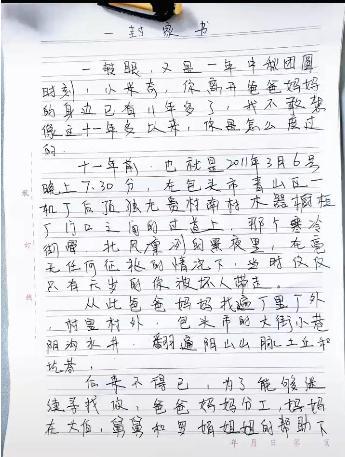 一封家书
一转眼，又是一年中秋团圆
时刻，小米奇，你离开爸爸妈妈
的身边已有11年多了，我不敢想
像这十一年多以来，你是怎么度过
的。
十一年前，也就是2011年3月6号
晚上7.30分，在包头市青山区一
机厂后顶独龙贵村南村木器橱柜
厂门口之间的过道上，那个寒冷
街口，北风凛冽的黑夜里，在毫
无任何征兆的情况下，当时仅仅
只有六岁的你被坏人带走。
从此爸爸妈妈找遍了里了外
，村里村外，包头市的大街小巷
阴沟水井，翻遍阴山山脉土丘和
坑巷，
后来不得已，为了能够继
续寻找你，爸爸妈妈分工，妈妈
在大伯，舅舅和男姐姐姐的帮助下
装订线
年月日第页